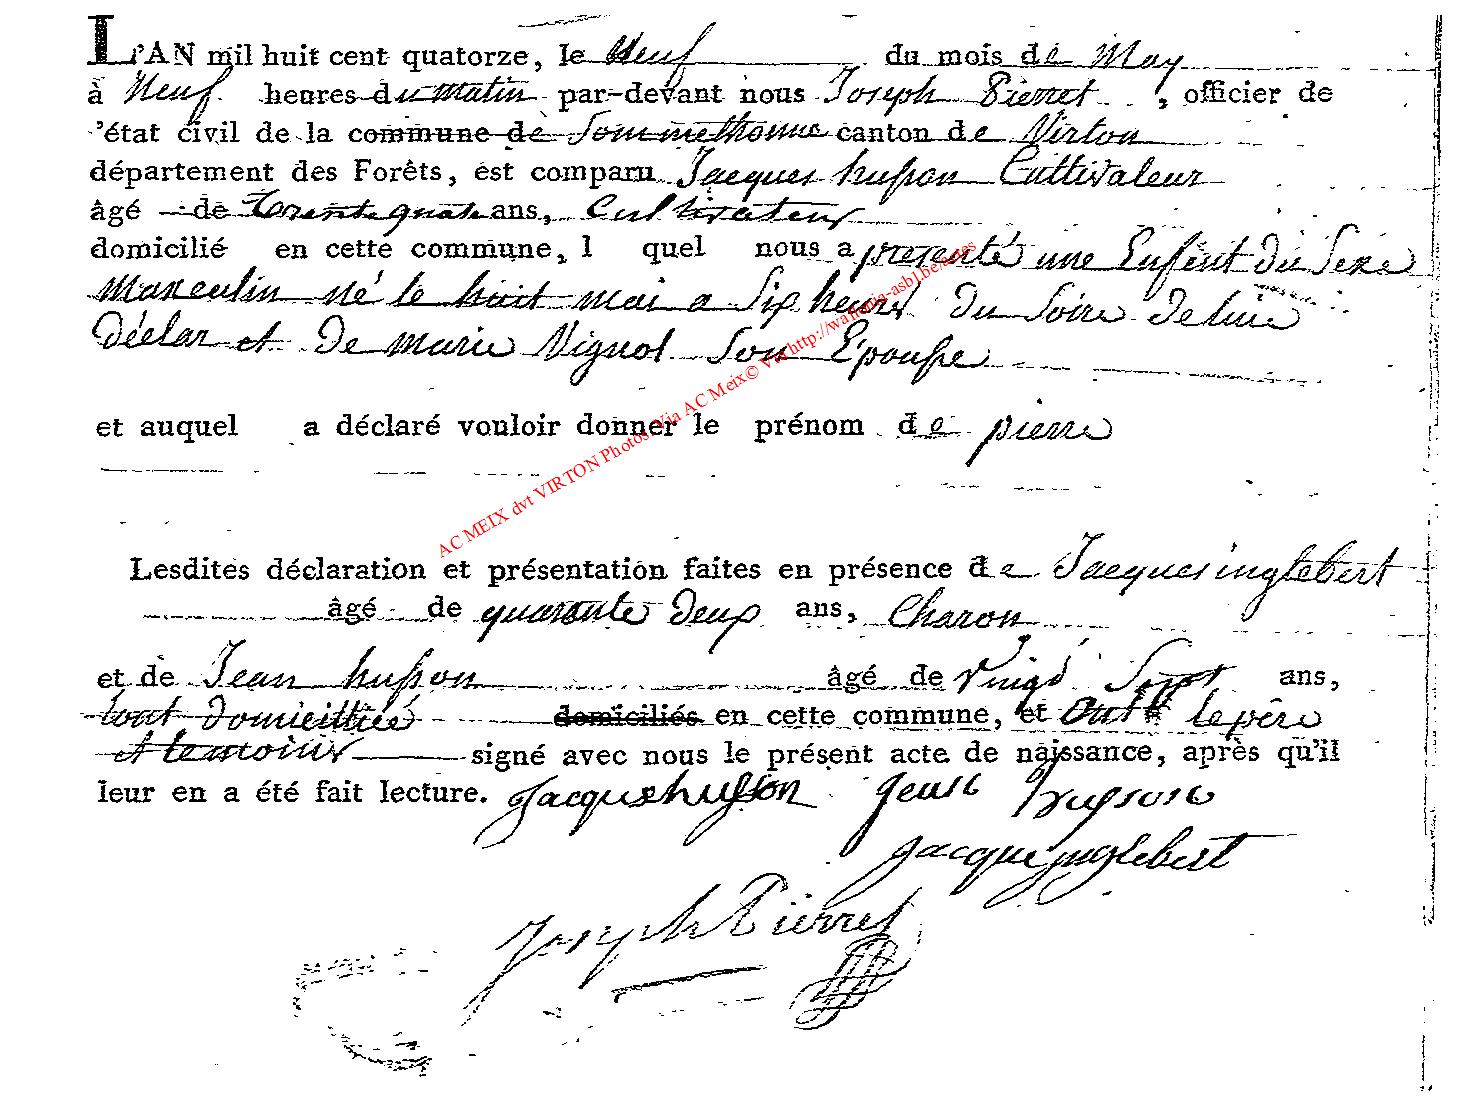 L'AN mil huit cent quatorze, le Neuf du mois de May
à Neuf heures du matin par-devant nous Joseph Pierret, officier de
'état civil de la commune de Sommethonne canton de Virton
département des Forêts, est comparu Jacques husson Cultivateur
âgé de Trente quatre ans, Cultivateur
domicilié en cette commune, l quel nous a presenté une Enfent du Sexe
Masculin né le huit mai a Six heures du Soire de lui
déclar et de marie Vignol Son Epousse
et auquel a déclaré vouloir donner le prénom de pierre
Lesdites déclaration et présentation faites en présence de Jacques inglebert
âgé de quarante deux ans, Charon
et de Jean husson âgé de Vingt Sept ans,
tout domicillié domiciliés en cette commune, et ont le père
et temoins signé avec nous le présent acte de naissance, après qu'il
leur en a été fait lecture. Jacques husson Jean husson
Jacque inglebert
Joseph Pierret
AC MEIX dvt VIRTON Photos Via AC Meix© Via http://wallonia-asbl.be/actes